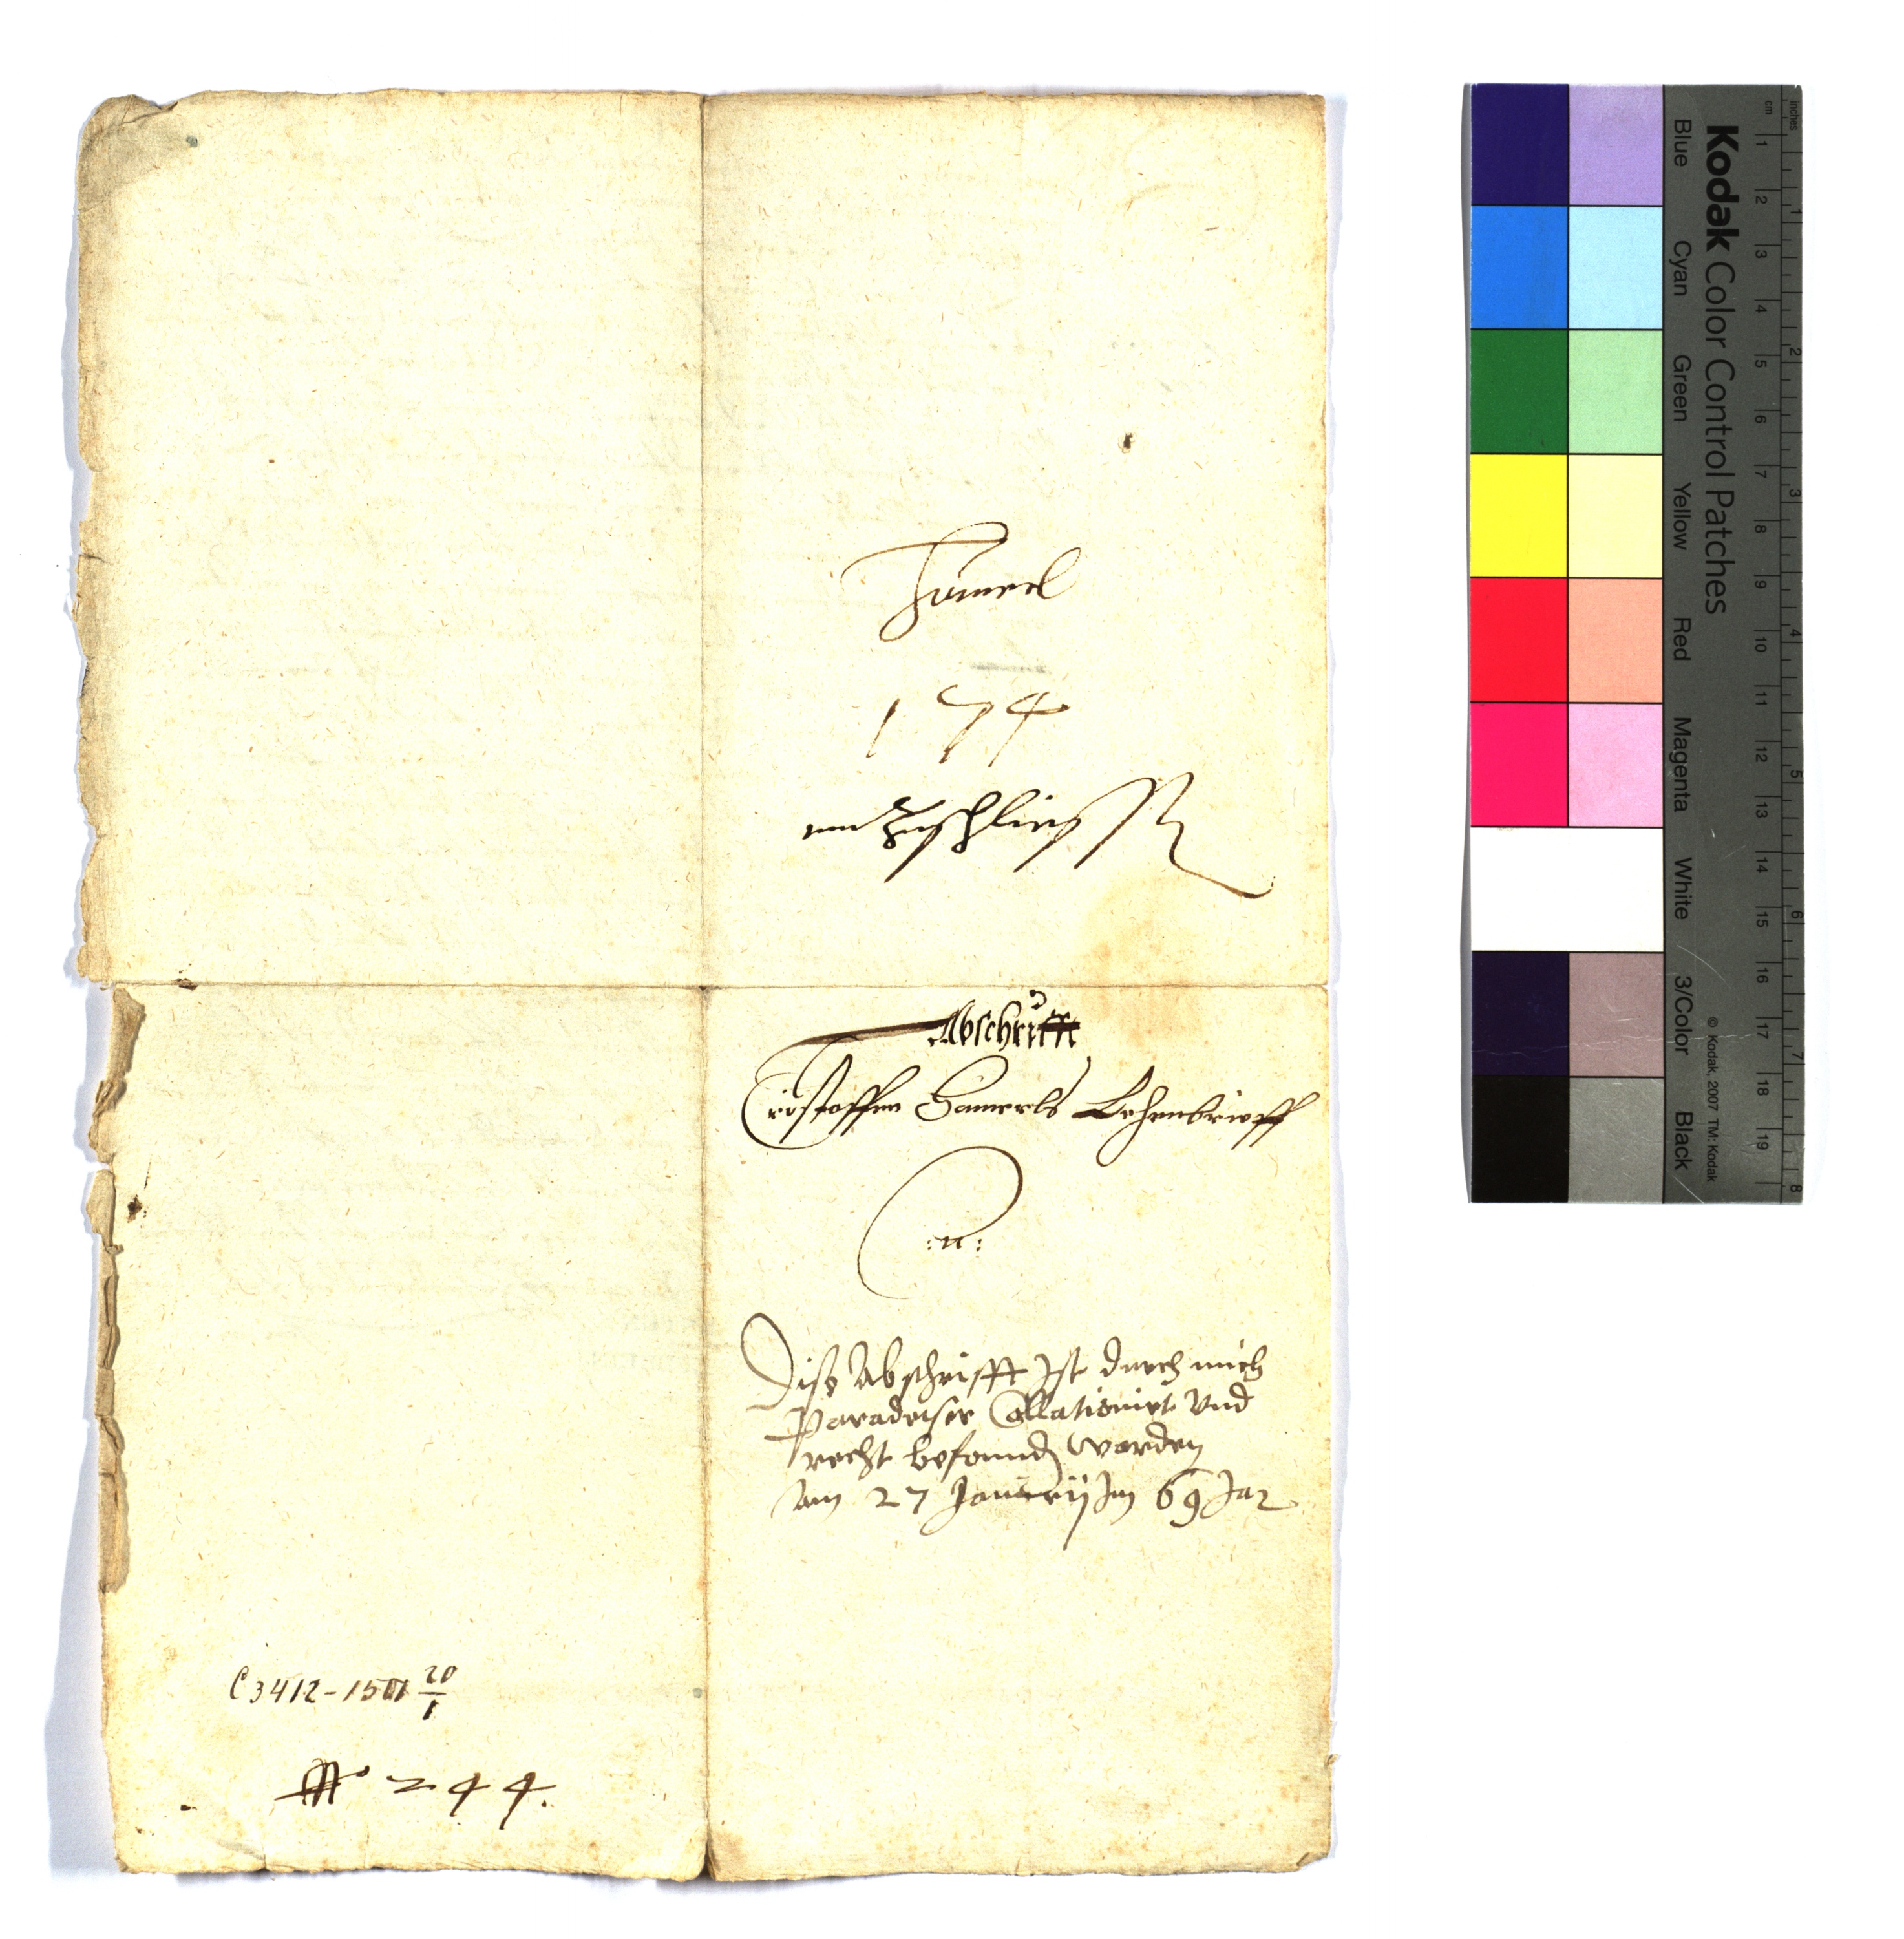 Hämerl
174
Abschrifft
Cristoffen Hamerls Lehenbrieff
:n:
Dise Abschrifft Ist durch mich
Paradeiser Collationirt Vnd
recht befonnden worden
Am 27 Januarij Im 69 Jar
C 3412-150 20/1
No 244.
Kodak Color Control Patches
Blue Cyan Green Yellow Red Magenta White 3/Color Black
© Kodak, 2007 TM: Kodak
inches 1 2 3 4 5 6 7 8
cm 1 2 3 4 5 6 7 8 9 10 11 12 13 14 15 16 17 18 19